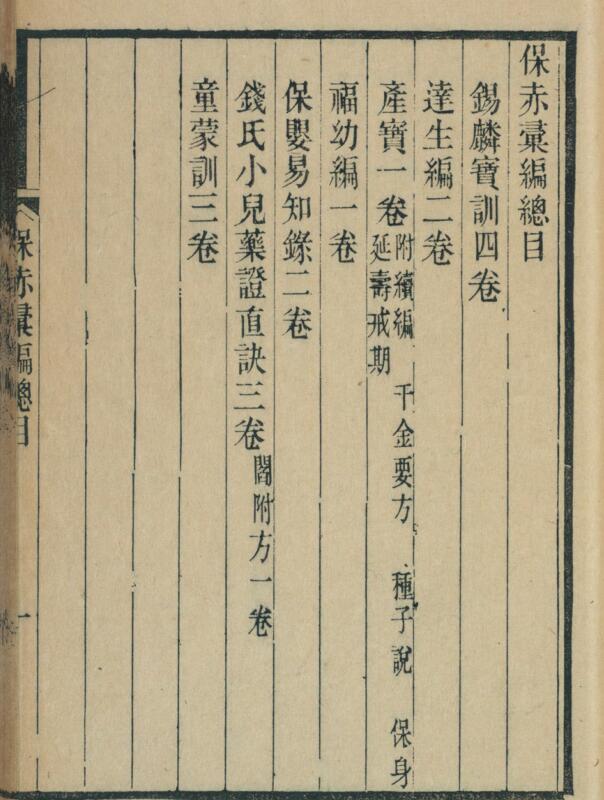 保赤彙編總目
錫麟寶訓四卷
達生編二卷
產寶一卷 附續編 千金要方 種子說 保身
延壽戒期
福幼編一卷
保嬰易知錄二卷
錢氏小兒藥證直訣三卷 閻附方一卷
童蒙訓三卷
保赤彙編總目
一